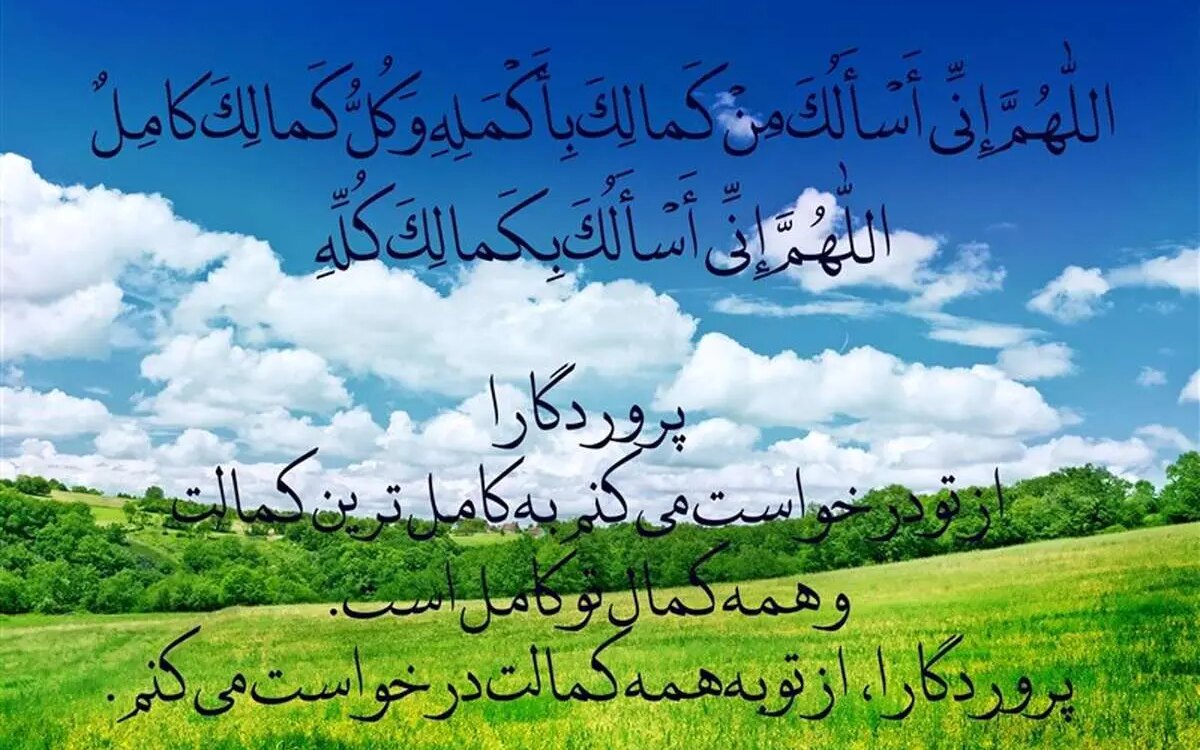 اللّٰهُمَّ إِنِّی أَسْأَلُكَ مِنْ كَمالِكَ بِأَكْمَلِهِ وَكُلُّ كَمالِكَ كامِلٌ
اللّٰهُمَّ إِنِّی أَسْأَلُكَ بِكَمالِكَ كُلِّهِ
پروردگارا
از تو درخواست می کنم به کامل ترین کمالت
و همه کمال تو کامل است.
پروردگارا، از تو به همه کمالت درخواست می کنم.